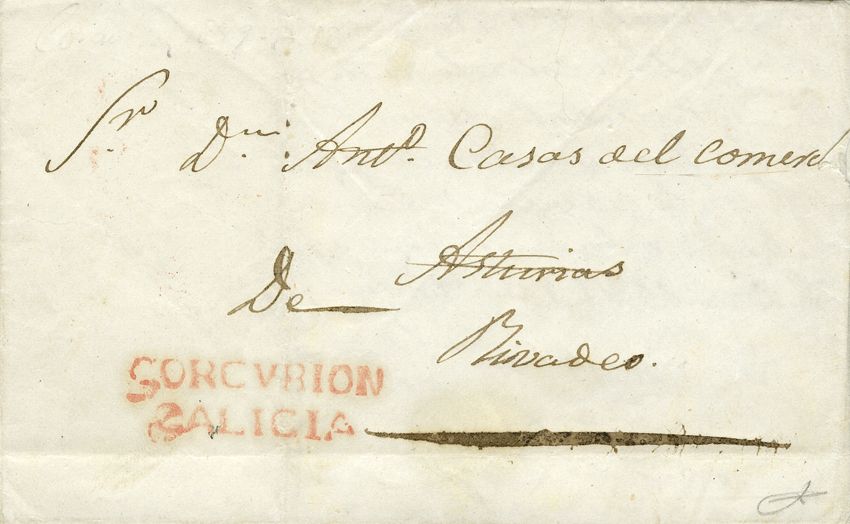 Sr. Dn. Anto. Casas del comerc
De Asturias
Rivadeo.
CORCVBION
GALICIA